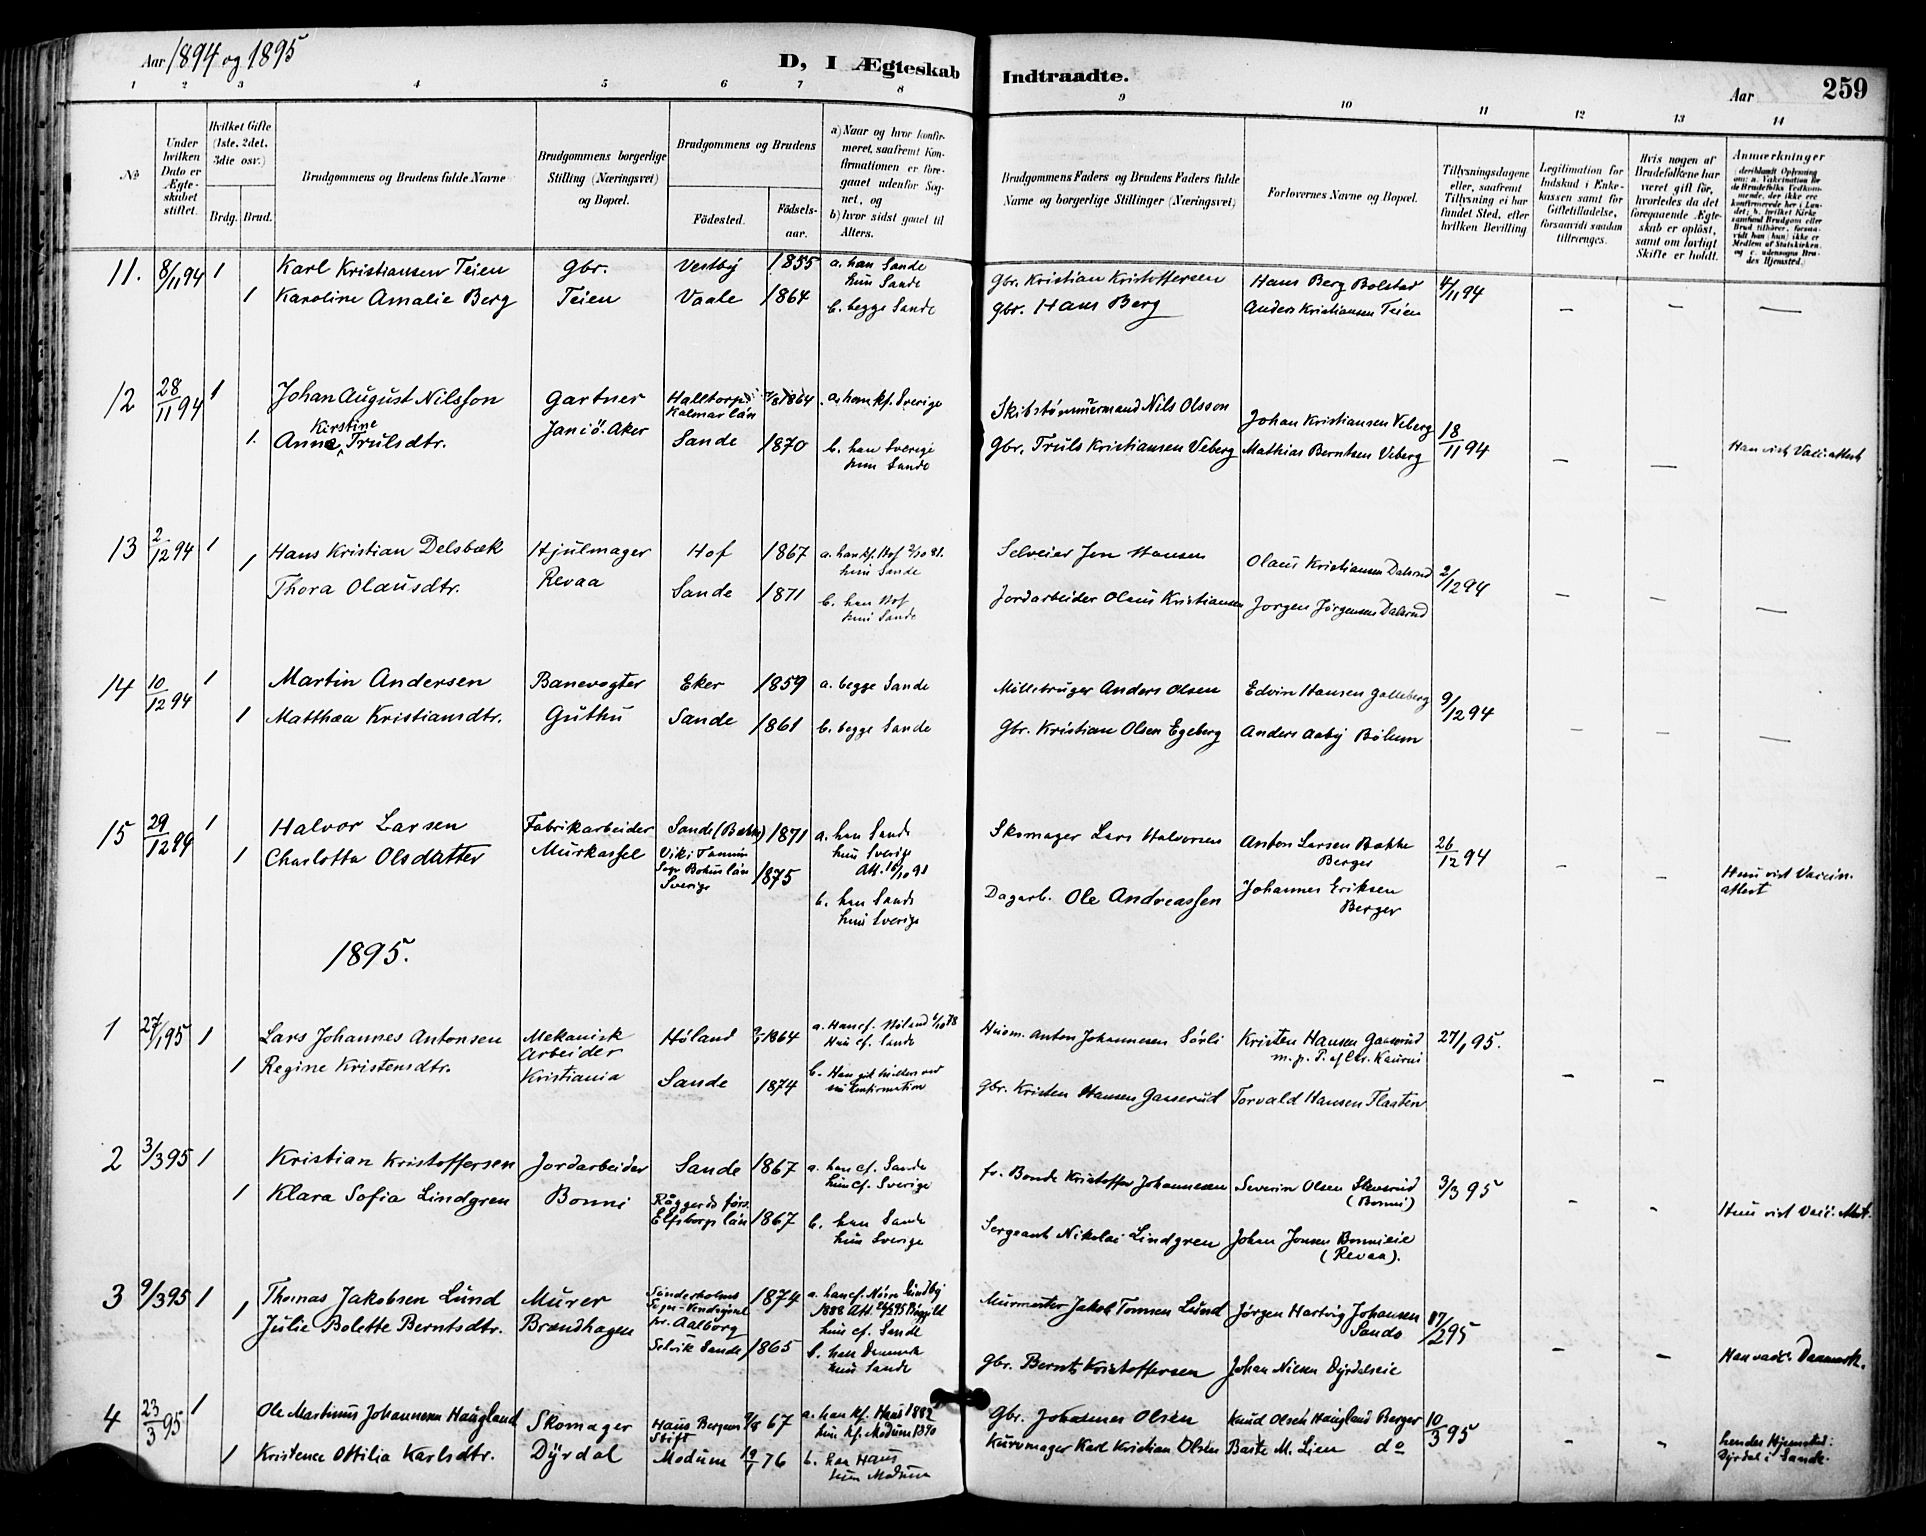 Aar 1894 og 1895
D, I Ægteskab Indtraadte.
Aar 259
1 2 3 4 5 6 7 8 9 10 11 12 13 14
No
Under hvilken Dato er Ægteskabet stiftet.
Hvilket Gifte (1ste, 2det, 3die osv.)
Brdg. Brud.
Brudgommens og Brudens fulde Navne
Brudgommens borgerlige Stilling (Næringsvei) og Bopæl.
Brudgommens og Brudens
Födested.
Födselsaar.
a) Naar og hvor konfirmeret, saafremt Konfirmationen er foregaaet udenfor Sognet, og
b) hvor sidst gaaet til Alters.
Brudgommens Faders og Brudens Faders fulde Navne og borgerlige Stillinger (Næringsvei)
Forlovernes Navne og Bopæl.
Tillysningsdagene eller, saafremt Tillysning ei har fundet Sted, efter hvilken Bevilling
Legitimation for Indskud i Enkekassen samt for Giftetilladelse, forsaavidt saadan tiltrænges.
Hvis nogen af Brudefolkene har været gift för, hvorledes da det foregaaende Ægteskab er oplöst, samt om lovligt Skifte er holdt.
Anmærkninger
11. 8/11 94 1 Karl Kristiansen Teien Gbr. Vestby 1855 a. han Sande
hun Sande
1 Karoline Amalie Berg Teien Vaale 1864 b. begge Sande
Gbr. Kristian Kristoffersen Hans Berg Bolstad 4/11 94
Gbr. Hans Berg Anders Kristiansen Teien — — —
12 28/11 94 1 Johan August Nilsson Gartner Halltorps Kalmar län 1864 a. han kf. Sverige
1. Anne Kirstine Trulsdtr. Janiö. Aker Sande 1870 b. han Sverige
hun Sande
Skibstömmermand Nils Olsson Johan Kristiansen Veberg 18/11 94
Gbr. Truls Kristiansen Veberg Mathias Berntsen Veberg — — Han vist Vacc. attest
13 2/12 94 1 Hans Kristian Delsbæk Hjulmager Hof 1867 a. han kf. Hof 2/10 81.
hun Sande
1 Thora Olausdtr. Revaa Sande 1871 b. han Hof
hun Sande
Selveier Jon Hansen Olaus Kristiansen Dalsrud 2/12 94
Jordarbeider Olaus Kristiansen Jorgen Jörgensen Dalsrud — — —
14 10/12 94 1 Martin Andersen Banevogter Eker 1859 a. begge Sande
1 Matthæa Kristiansdtr. Guthu Sande 1861 b. begge Sande
Möllebruger Anders Olsen Edvin Hansen Galleberg 9/12 94
Gbr. Kristian Olsen Egeberg Anders Aaby Bölum — — —
15 29/12 94 1 Halvor Larsen Fabrikarbeider Sande 1871 a. han Sande
hun Sverige
Att. 10/10 91
1 Charlotta Olsdatter Murkassel Sogn Bohus län Sverige 1875
b. han Sande
hun Sverige
Skomager Lars Halvorsen Anton Larsen Bakke Berger 26/12 94
Dagarb. Ole Andreassen Johannes Eriksen Berger — — Hun vist Vaccin. attest
1895.
1 27/1 95 1 Lars Johannes Antonsen Mekanisk Arbeider Höland 1864 a. Han cf. Höland 6/10 78
Hun cf. Sande
1 Regine Kristensdtr. Kristiania Sande 1874 b. Han
Konfirmation
Husm. Anton Johannesen Sörli Kristen Hansen Gaaserud 27/1 95.
Gbr. Kristen Hansen Gaaserud Torvald Hansen Flaaten — —
2 3/3 95 1 Kristian Kristoffersen Jordarbeider Sande 1867 a. han cf. Sande
hun cf. Sverige
1 Klara Sofia Lindgren Bonni Råggerds förs. Elfsborgs län 1867 b. han Sande
hun Sverige
fr. Bonde Kristoffer Johannesen Severin Olsen Skverud (Bonni) 3/3 95
Sergeant Nikolai Lindgren Johan Jonsen Bonnieie (Revaa). — — Hun vist Vacc. Att.
3 9/3 95 1 Thomas Jakobsen Lund Murer Sönderholms Sogn - Vendsyssel pr. Aalborg 1874 a. han cf. Nörre Sundby
1888
hun cf. Sande
1 Julie Bolette Berntsdtr. Brandhagen Selvik Sande 1865 b. han Danmark
hun Sande
Murmester Jakob Tomsen Lund Jörgen Hartvig Johansen Sande 17/2 95
Gbr. Bernt Kristoffersen Johan Nilsen Dyrdalseie — — Han vacc. Danmark.
4 23/3 95 1 Ole Martinus Johannesen Haugland Skomager Haus Bergens Stift 67 a. han kf. Haus 1882
hun kf. Modum 1890
1 Kristence Ottilia Karlsdtr. Dÿrdal Modum 76 b. han Haus
hun Modum
Gbr. Johannes Olsen Knud Olsen Haugland Berger 10/3 95
Kurvmager Karl Kristian Olsen Baste M. Lien do — — hendes Hjemsted: Dyrdal i Sande.